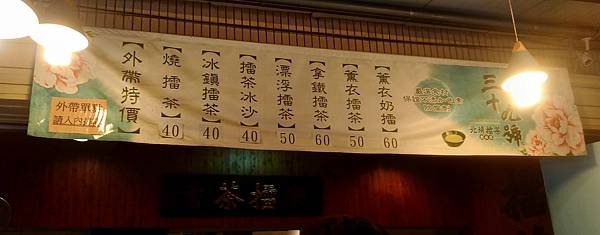 三十九號
北埔擂茶
【薰衣奶擂】 60
【薰衣擂茶】 50
【拿鐵擂茶】 60
【漂浮擂茶】 50
【擂茶冰沙】 40
【冰鎮擂茶】 40
【燒擂茶】 40
【外帶特價】
外帶單點
請入內
擂茶